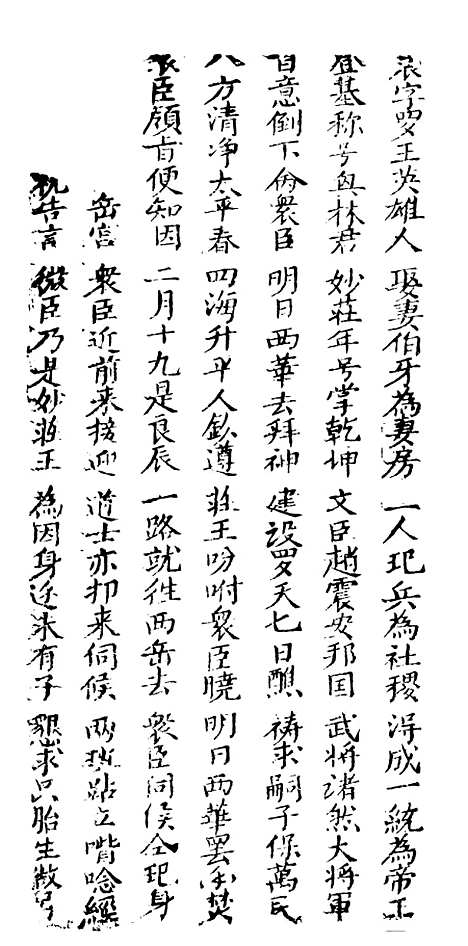 字罗王英雄人 娶妻伯牙為妻房 一人玘兵為社稷 得成一統為帝王
登基称号興林君 妙莊年号掌乾坤 文臣趙震安邦国 武將诸然大將軍
旨意倒下份衆臣 明日西華去拜神 建設罗天七日醮 祷求嗣子保萬民
八方清净太平春 四海升平人欽遵 莊王吩咐衆臣曉 明日西華罢香焚
衆臣領旨便知因 二月十九是良辰 一路就徃西岳去 衆臣伺侯仝玘身
岳宫 衆臣近前来接迎 道士亦扣来伺候 两班跕立嘴唸經
祝告言 微臣乃是妙莊王 為因身边未有子 懇求 胎生